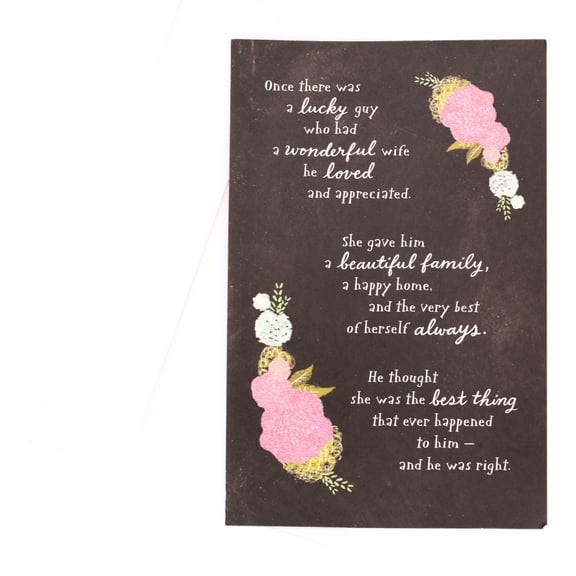 Once there was
a lucky guy
who had
a wonderful wife
he loved
and appreciated.
She gave him
a beautiful family,
a happy home,
and the very best
of herself always.
He thought
she was the best thing
that ever happened
to him —
and he was right.